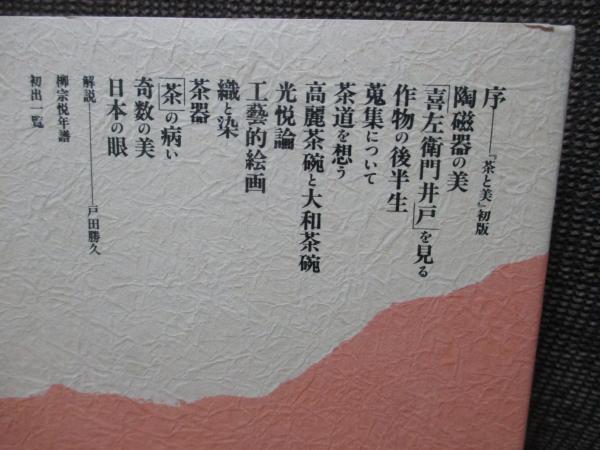 序――『茶と美』初版
陶磁器の美
「喜左衛門井戸」を見る
作物の後半生
蒐集について
茶道を想う
高麗茶碗と大和茶碗
光悦論
工藝的絵画
織と染
茶器
「茶」の病い
奇数の美
日本の眼
解説――戸田勝久
柳宗悦年譜
初出一覧